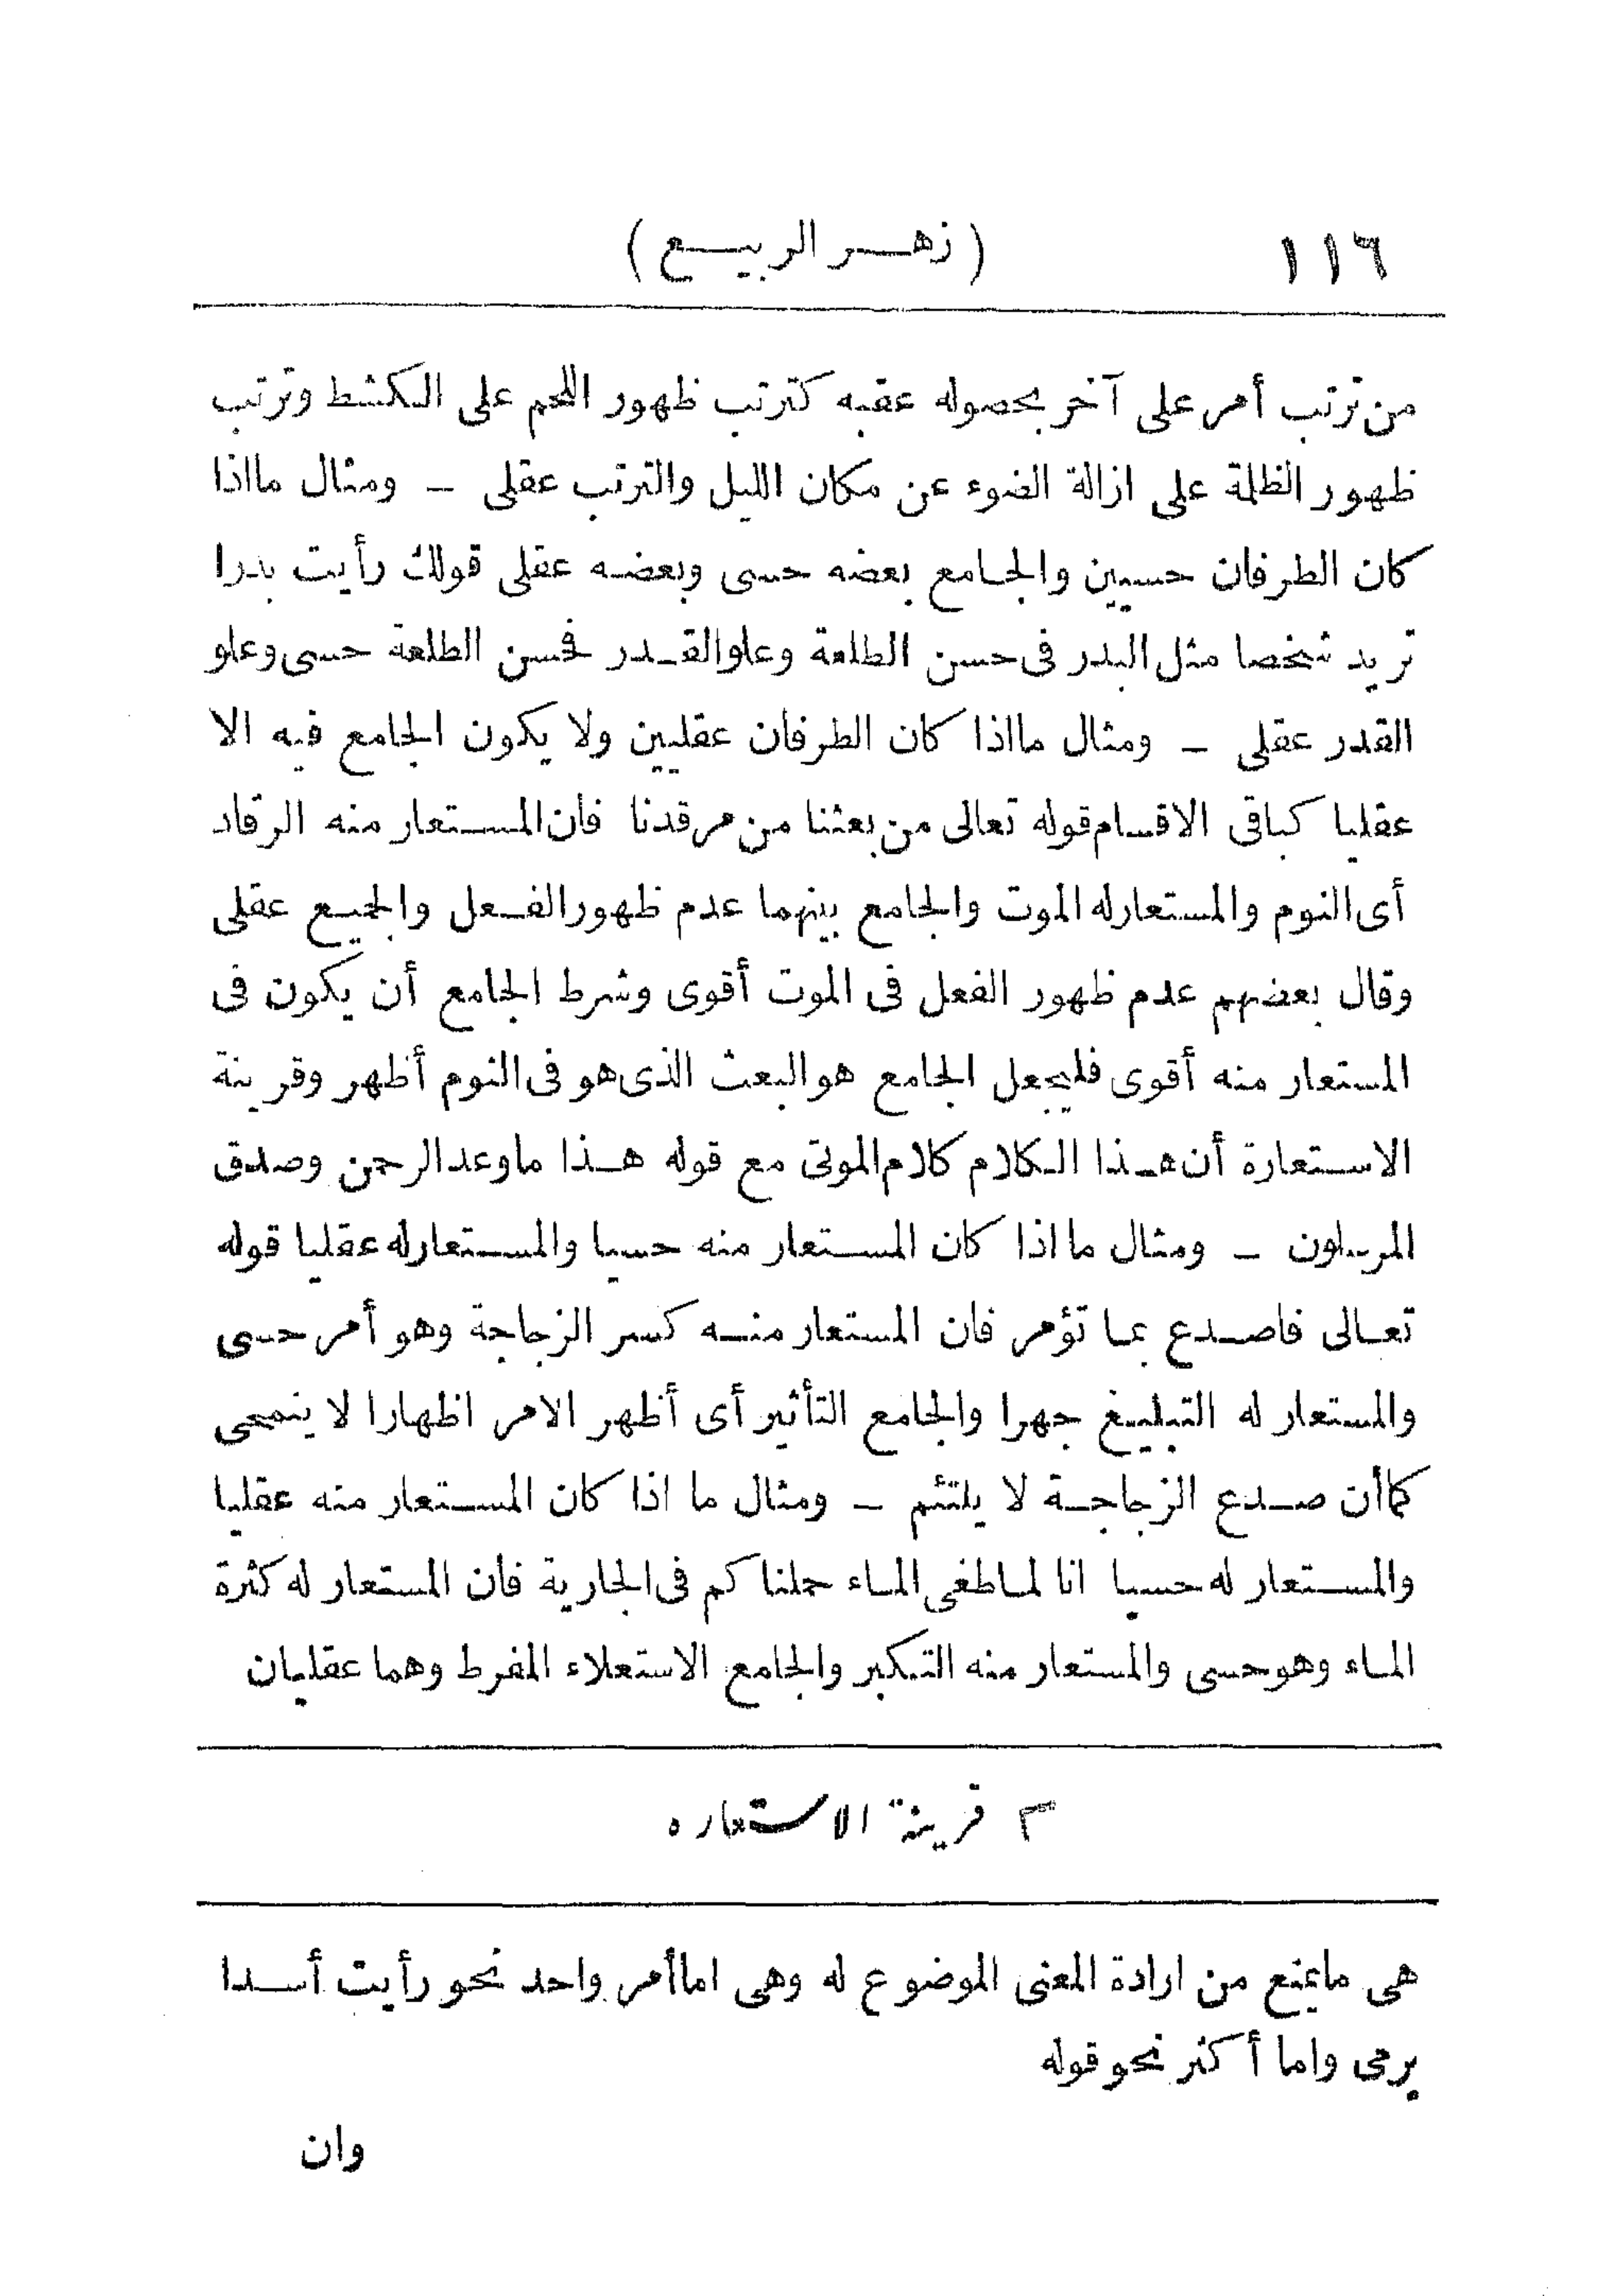 ١١٦ (زهر الربيع)
من ترتب أمر على آخر بحصوله عقبه كترتب ظهور اللحم على الكشط وترتب
ظهور الظلمة على ازالة الضوء عن مكان الليل والترتب عقلى – ومثال مااذا
كان الطرفان حسيين والجامع بعضه حسى وبعضه عقلى قولك رأيت بدرا
تريد شخصا مثل البدر فى حسن الطلعة وعلو القدر فحسن الطلعة حسى وعلو
القدر عقلى – ومثال مااذا كان الطرفان عقليين ولا يكون الجامع فيه الا
عقليا كباقى الاقسام قوله تعالى من بعثنا من مرقدنا فان المستعار منه الرقاد
أى النوم والمستعار له الموت والجامع بينهما عدم ظهور الفعل والجميع عقلى
وقال بعضهم عدم ظهور الفعل فى الموت أقوى وشرط الجامع أن يكون فى
المستعار منه أقوى فليجعل الجامع هو البعث الذى هو فى النوم أظهر وقرينة
الاستعارة أن هذا الكلام كلام الموتى مع قوله هذا ماوعد الرحمن وصدق
المرسلون – ومثال ما اذا كان المستعار منه حسيا والمستعار له عقليا قوله
تعالى فاصدع بما تؤمر فان المستعار منه كسر الزجاجة وهو أمر حسى
والمستعار له التبليغ جهرا والجامع التأثير أى أظهر الامر اظهارا لا ينمحى
كماأن صدع الزجاجة لا يلتئم – ومثال ما اذا كان المستعار منه عقليا
والمستعار له حسيا انا لما طغى الماء حملناكم فى الجارية فان المستعار له كثرة
الماء وهو حسى والمستعار منه التكبر والجامع الاستعلاء المفرط وهما عقليان
٣ قرينة الاستعاره
هى مايمنع من ارادة المعنى الموضوع له وهى اماأمر واحد نحو رأيت أسدا
يرمى واما أكثر نحو قوله
وان